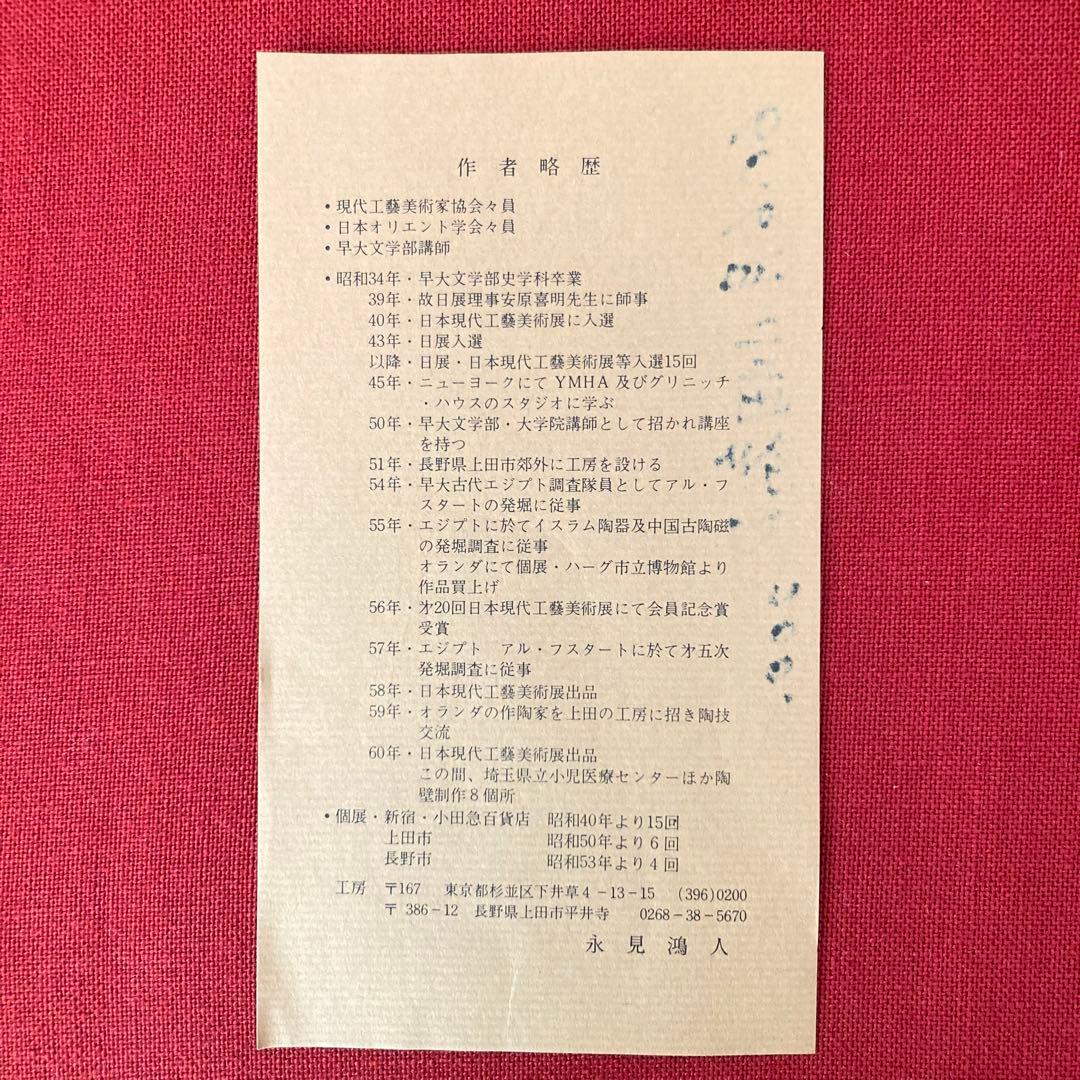 作者略歴
・現代工藝美術家協会々員
・日本オリエント学会々員
・早大文学部講師
・昭和34年・早大文学部史学科卒業
39年・故日展理事安原喜明先生に師事
40年・日本現代工藝美術展に入選
43年・日展入選
以降・日展・日本現代工藝美術展等入選15回
45年・ニューヨークにて YMHA 及びグリニッチ
・ハウスのスタジオに学ぶ
50年・早大文学部・大学院講師として招かれ講座
を持つ
51年・長野県上田市郊外に工房を設ける
54年・早大古代エジプト調査隊員としてアル・フ
スタートの発掘に従事
55年・エジプトに於てイスラム陶器及中国古陶磁
の発掘調査に従事
オランダにて個展・ハーグ市立博物館より
作品買上げ
56年・才20回日本現代工藝美術展にて会員記念賞
受賞
57年・エジプト アル・フスタートに於て才五次
発掘調査に従事
58年・日本現代工藝美術展出品
59年・オランダの作陶家を上田の工房に招き陶技
交流
60年・日本現代工藝美術展出品
この間、埼玉県立小児医療センターほか陶
壁制作8個所
・個展・新宿・小田急百貨店 昭和40年より15回
上田市 昭和50年より6回
長野市 昭和53年より4回
工房 〒167 東京都杉並区下井草4-13-15 (396)0200
〒386-12 長野県上田市平井寺 0268-38-5670
永見鴻人